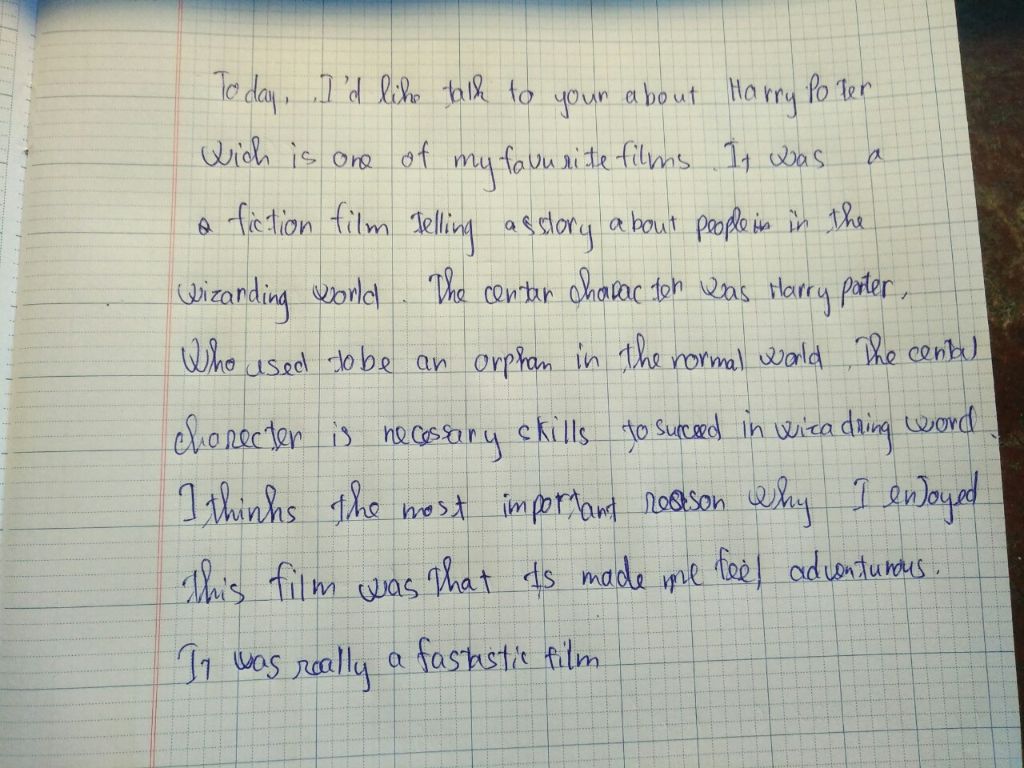 Today, I'd like talk to your about Harry Poter
wich is one of my favurite films. It was a
a fiction film telling asstory about people in in the
wizarding world. The centar character was Harry poter,
who used to be an orphan in the normal world. The central
charecter is necessary skills to succeed in wizadring word.
I thinks the most important reason why I enjoyed
this film was that ts made me feel adventurous.
It was really a fastastic film